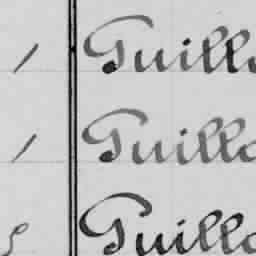 1 Guillo
1 Guilla
Guilla